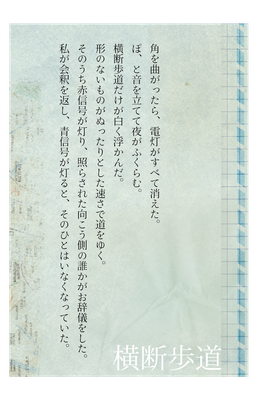 角を曲がったら、電灯がすべて消えた。
ぽ、と音を立てて夜がふくらむ。
横断歩道だけが白く浮かんだ。
形のないものがぬったりとした速さで道をゆく。
そのうち赤信号が灯り、照らされた向こう側の誰かがお辞儀をした。
私が会釈を返し、青信号が灯ると、そのひとはいなくなっていた。
横断歩道